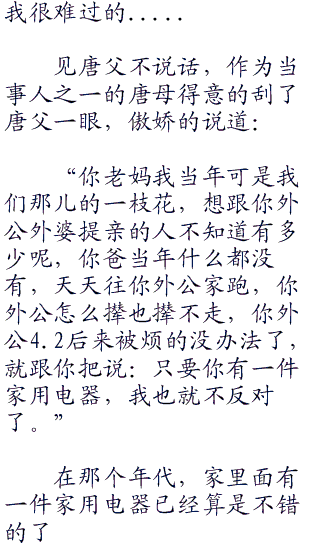 我很难过的.....
见唐父不说话，作为当
事人之一的唐母得意的刮了
唐父一眼，傲娇的说道：
“你老妈我当年可是我
们那儿的一枝花，想跟你外
公外婆提亲的人不知道有多
少呢，你爸当年什么都没
有，天天往你外公家跑，你
外公怎么撵也撵不走，你外
公4.2后来被烦的没办法了，
就跟你把说：只要你有一件
家用电器，我也就不反对
了。”
在那个年代，家里面有
一件家用电器已经算是不错
的了